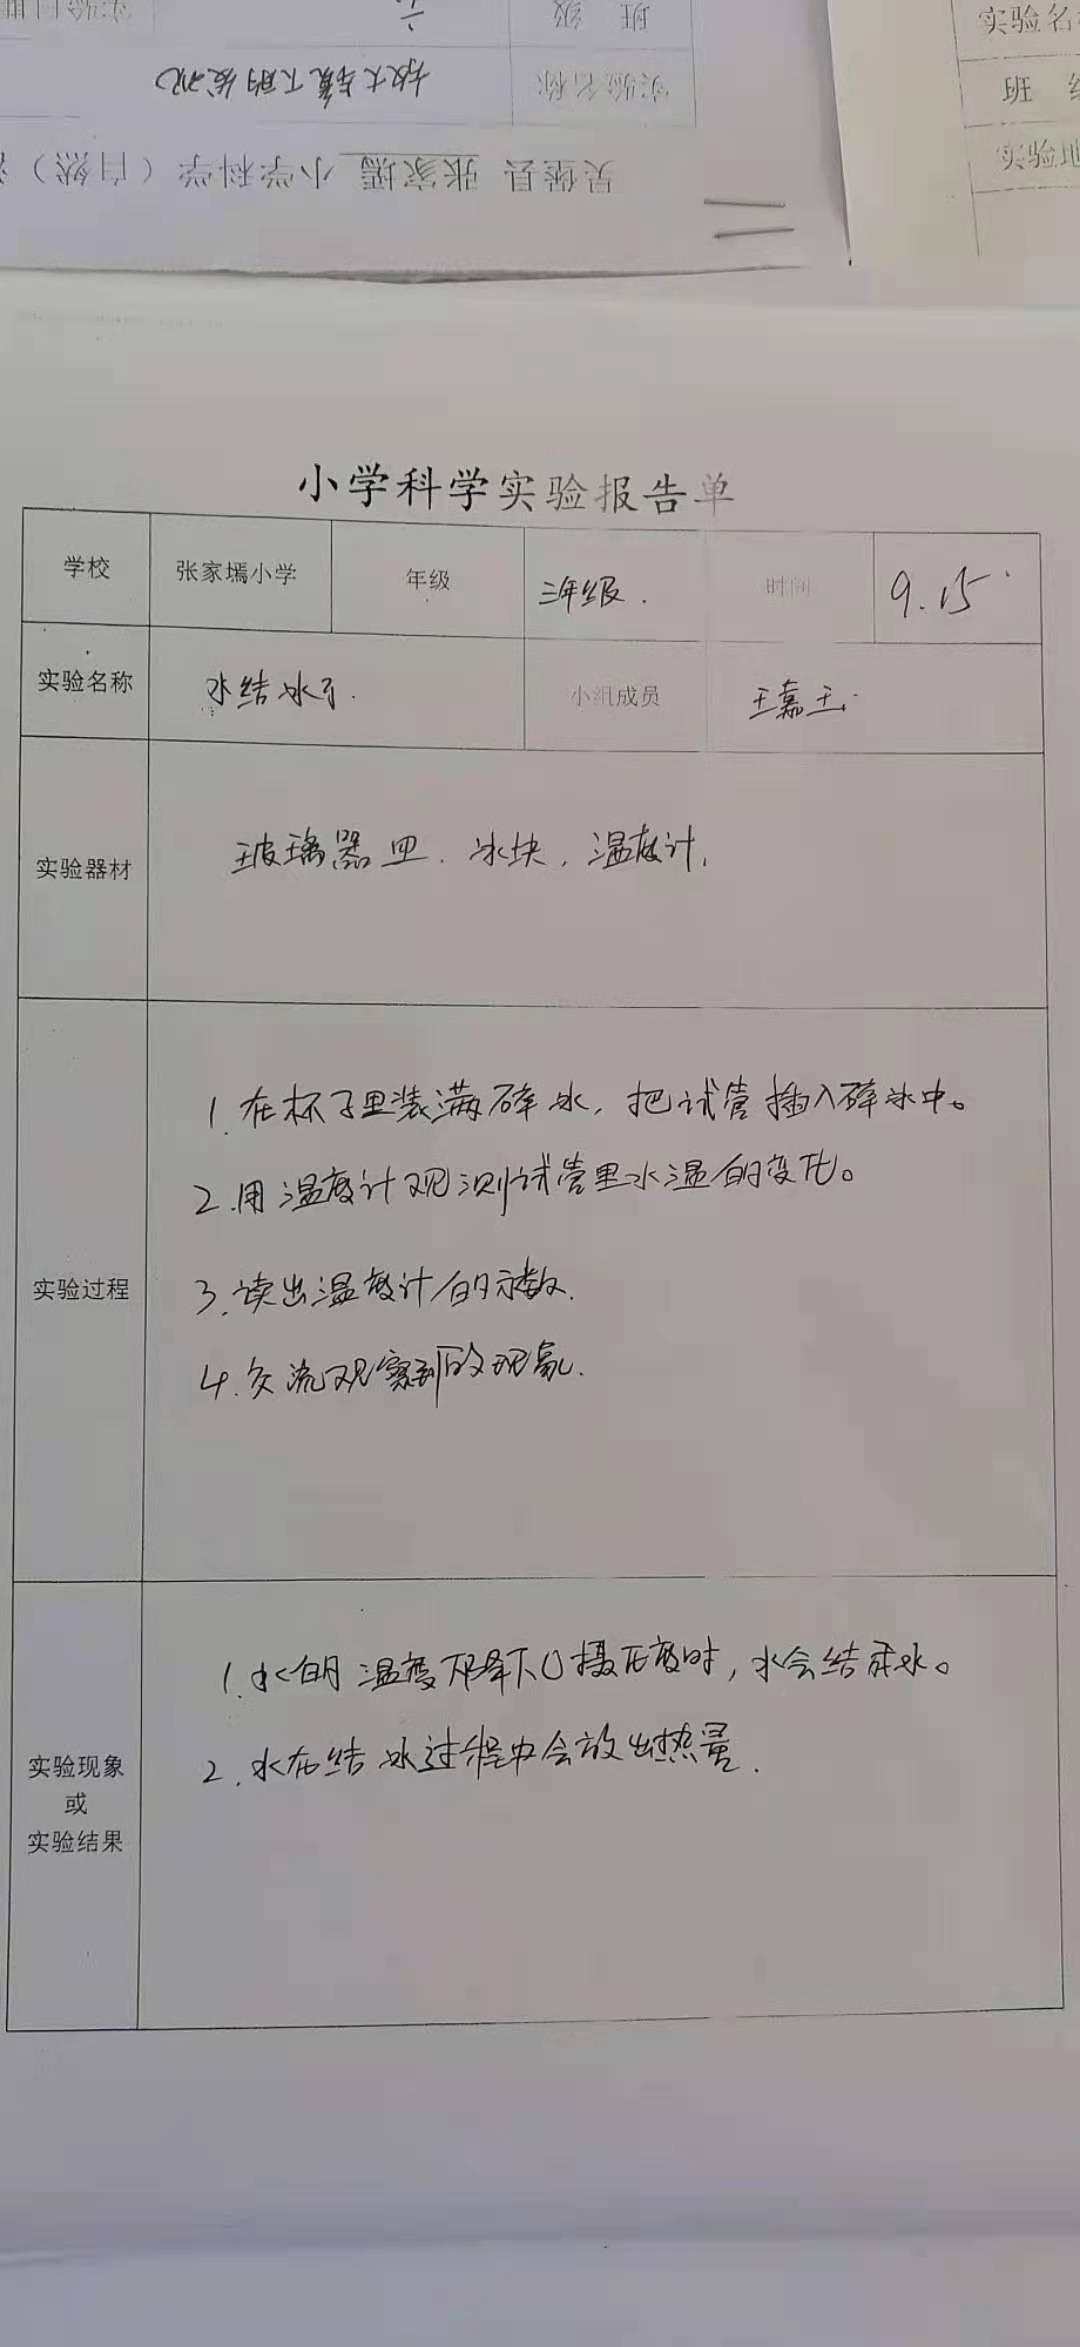 班 级 六
实验名称 放大镜下的发现
吴堡县 张家墕 小学科学（自然）
实验名
班
实验地
小学科学实验报告单
学校 张家墕小学 年级 三年级. 时间 9.15
实验名称 水结冰了. 小组成员 王嘉玉.
实验器材 玻璃器皿. 冰块, 温度计,
1. 在杯子里装满碎冰, 把试管插入碎冰中。
2. 用温度计观测试管里水温的变化。
实验过程 3. 读出温度计的示数.
4. 交流观察到的现象.
1. 水的温度下降下0摄氏度时, 水会结成冰。
2. 水在结冰过程中会放出热量.
实验现象
或
实验结果